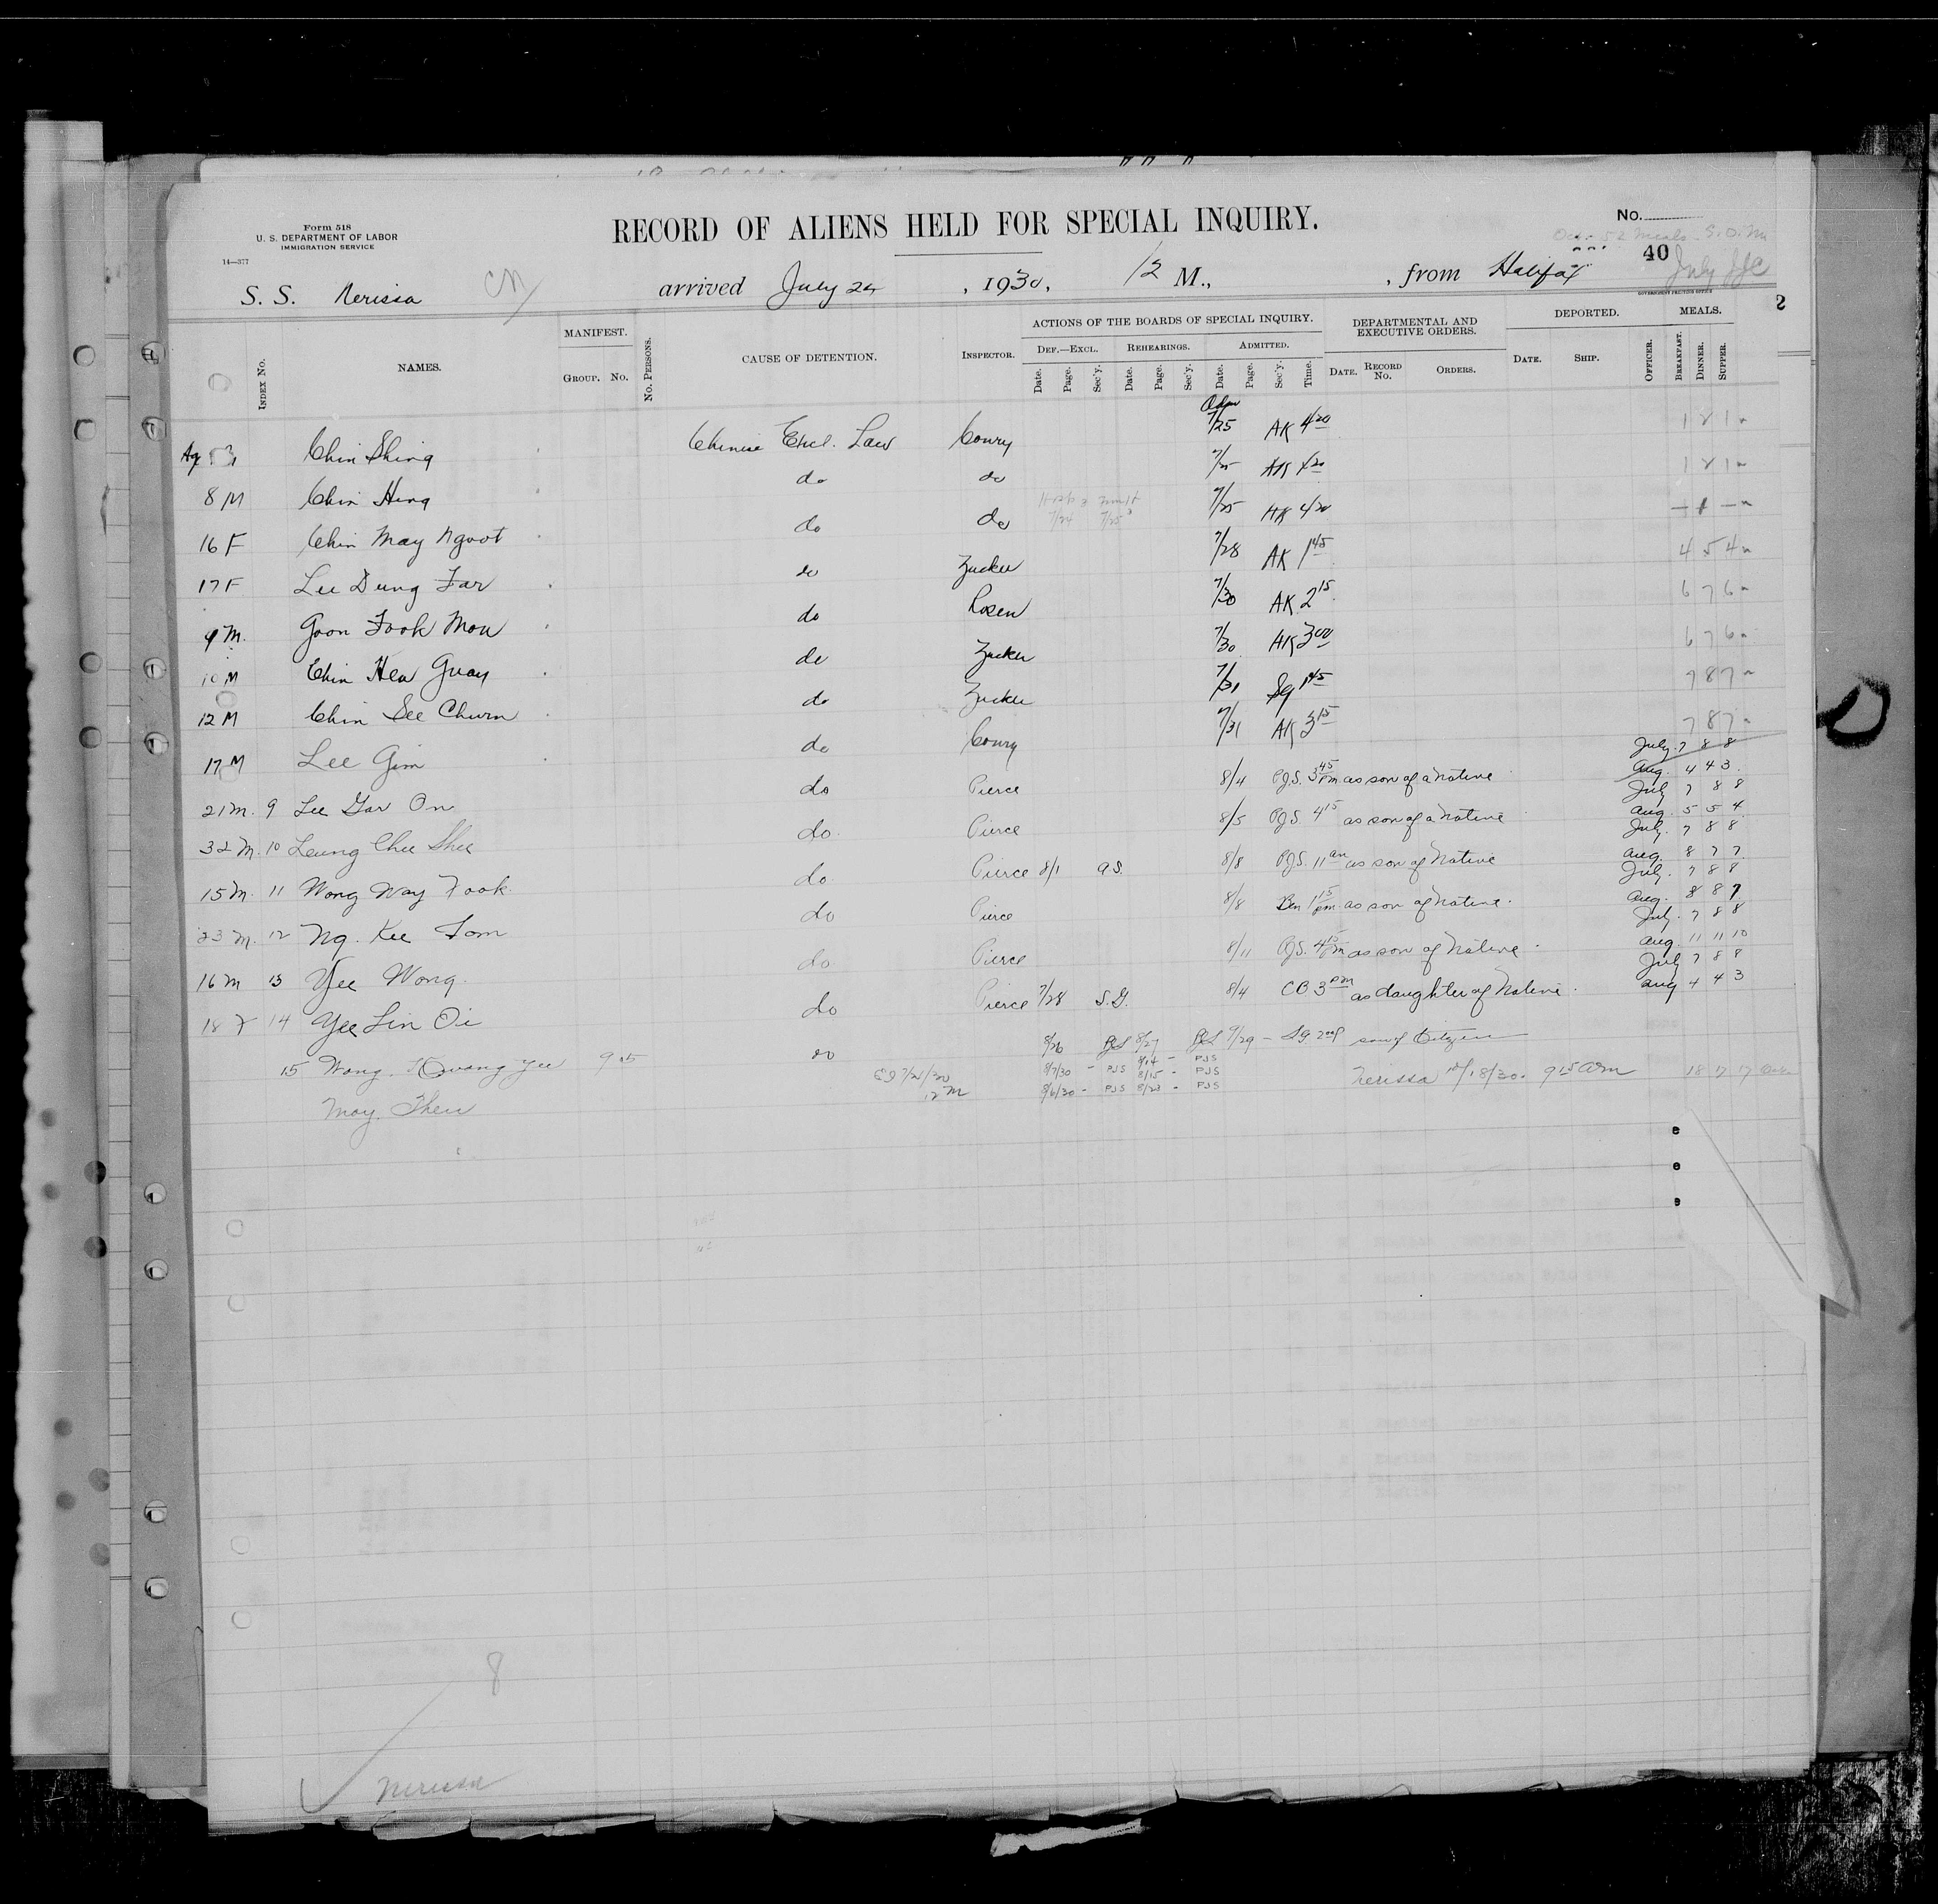 Form 518
U. S. DEPARTMENT OF LABOR
IMMIGRATION SERVICE
14—377
RECORD OF ALIENS HELD FOR SPECIAL INQUIRY.
No.
40
S. S. Nerissa arrived July 24, 1930, 12 M., , from Halifax
GOVERNMENT PRINTING OFFICE
INDEX NO. NAMES. MANIFEST. GROUP. NO. NO. PERSONS. CAUSE OF DETENTION. INSPECTOR. ACTIONS OF THE BOARDS OF SPECIAL INQUIRY. DEF.—EXCL. Date. Page. Sec'y. REHEARINGS. Date. Page. Sec'y. ADMITTED. Date. Page. Sec'y. Time. DEPARTMENTAL AND EXECUTIVE ORDERS. DATE. RECORD NO. ORDERS. DEPORTED. DATE. SHIP. OFFICER. MEALS. BREAKFAST. DINNER. SUPPER.
Chin Shing Chinese Excl. Law Coury 7/25 AK 4 20 1 2 1
8 M Chin Hing do do 7/25 AK 4 20 1 2 1
16 F Chin May Ngoot do do 7/25 AK 4 20 — 1 —
17 F Lee Dung Far do Zucker 7/28 AK 1 45 4 5 4
9 M. Goon Fook Mou do Rosen 7/30 AK 2 15 6 7 6
10 M Chin Hew Guay do Zucker 7/30 AK 3 00 6 7 6
12 M Chin See Churn do Zucker 7/31 SG 1 45 7 8 7
17 M Lee Gim do Coury 7/31 AK 3 15 7 8 7
21 M. 9 Lee Gar On do Pierce 8/4 P.J.S. 3 45 pm as son of a native July 7 8 8 Aug. 4 4 3
32 M. 10 Leung Chee Shee do Pierce 8/5 P.J.S. 4 15 as son of a native July 7 8 8 Aug. 5 5 4
15 M. 11 Wong Way Fook do Pierce 8/1 A.S. 8/8 P.J.S. 11 am as son of Native July. 7 8 8 Aug. 8 7 7
23 M. 12 Ng. Kee Fom do Pierce 8/8 Ben 1 15 pm as son of native. July. 7 8 8 Aug. 8 8 7
16 M 13 Yee Wong. do Pierce 8/11 P.J.S. 4 15 pm as son of Native. July. 7 8 8 Aug. 11 11 10
18 F 14 Yee Lin Oi do Pierce 7/28 S.G. 8/4 CO 3 PM as daughter of Native. July 7 8 8 Aug 4 4 3
15 Wong Kwang Yee 9 15 do 8/26 PJS 8/27 PJS 9/29 — SG 2 00 P son of Citizen
8/7/30 - PJS 8/14 - PJS
8/15 - PJS
May Shew 12 M 8/6/30 - PJS 8/23 - PJS Nerissa 10/18/30. 9 15 am 18 17 17
8
Nerissa